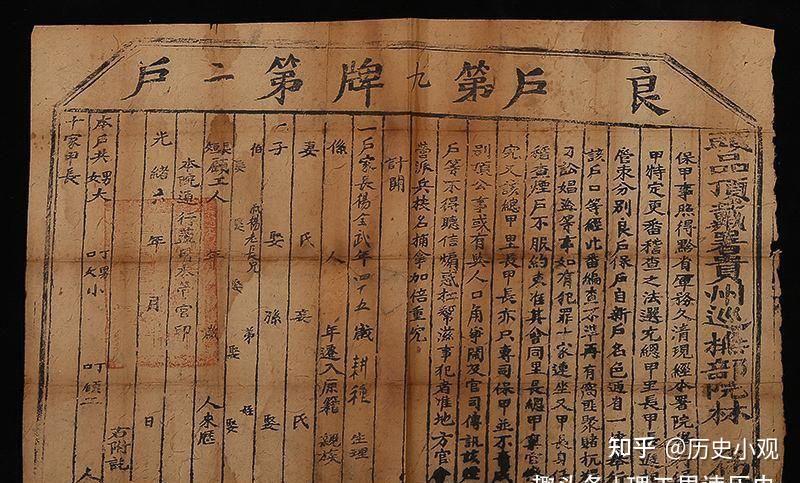 良戶第九牌第二戶
頭品頂戴署貴州巡撫部院林 為
保甲事照得黔省軍務久清現經本署院
甲特定更番稽查之法選充總甲里長甲長
管束分別良戶保戶自新戶名色通省一律奉
該戶口等經此番編查不準再有窩匪聚賭抗
習訟娼盜等事如有犯罪十家連坐又甲長身
稽查煙戶不服約束准其會同里長總甲稟官
究又該總甲里長甲長亦只專司保甲並不
別項公事或有與人口角爭鬧及官司傳訊該
戶等不得聽信煽惑扛幫滋事犯者准地方官會
營派兵按名捕拿加倍重究
計開
一戶家長楊全武年四十五歲耕種 生理
係 人 年遷入原籍 親族
妻 氏 妾 氏
子 娶 孫 娶
伯 叔楊老長兄 弟 姪
娶 娶 娶 娶
長短雇工人 年 歲 人來歷
本院通行蓋用奉常官印
光緒六年 月 日
本戶共男女大 丁口男女小 丁口 右附註
十家甲長 人
知乎 @历史小观